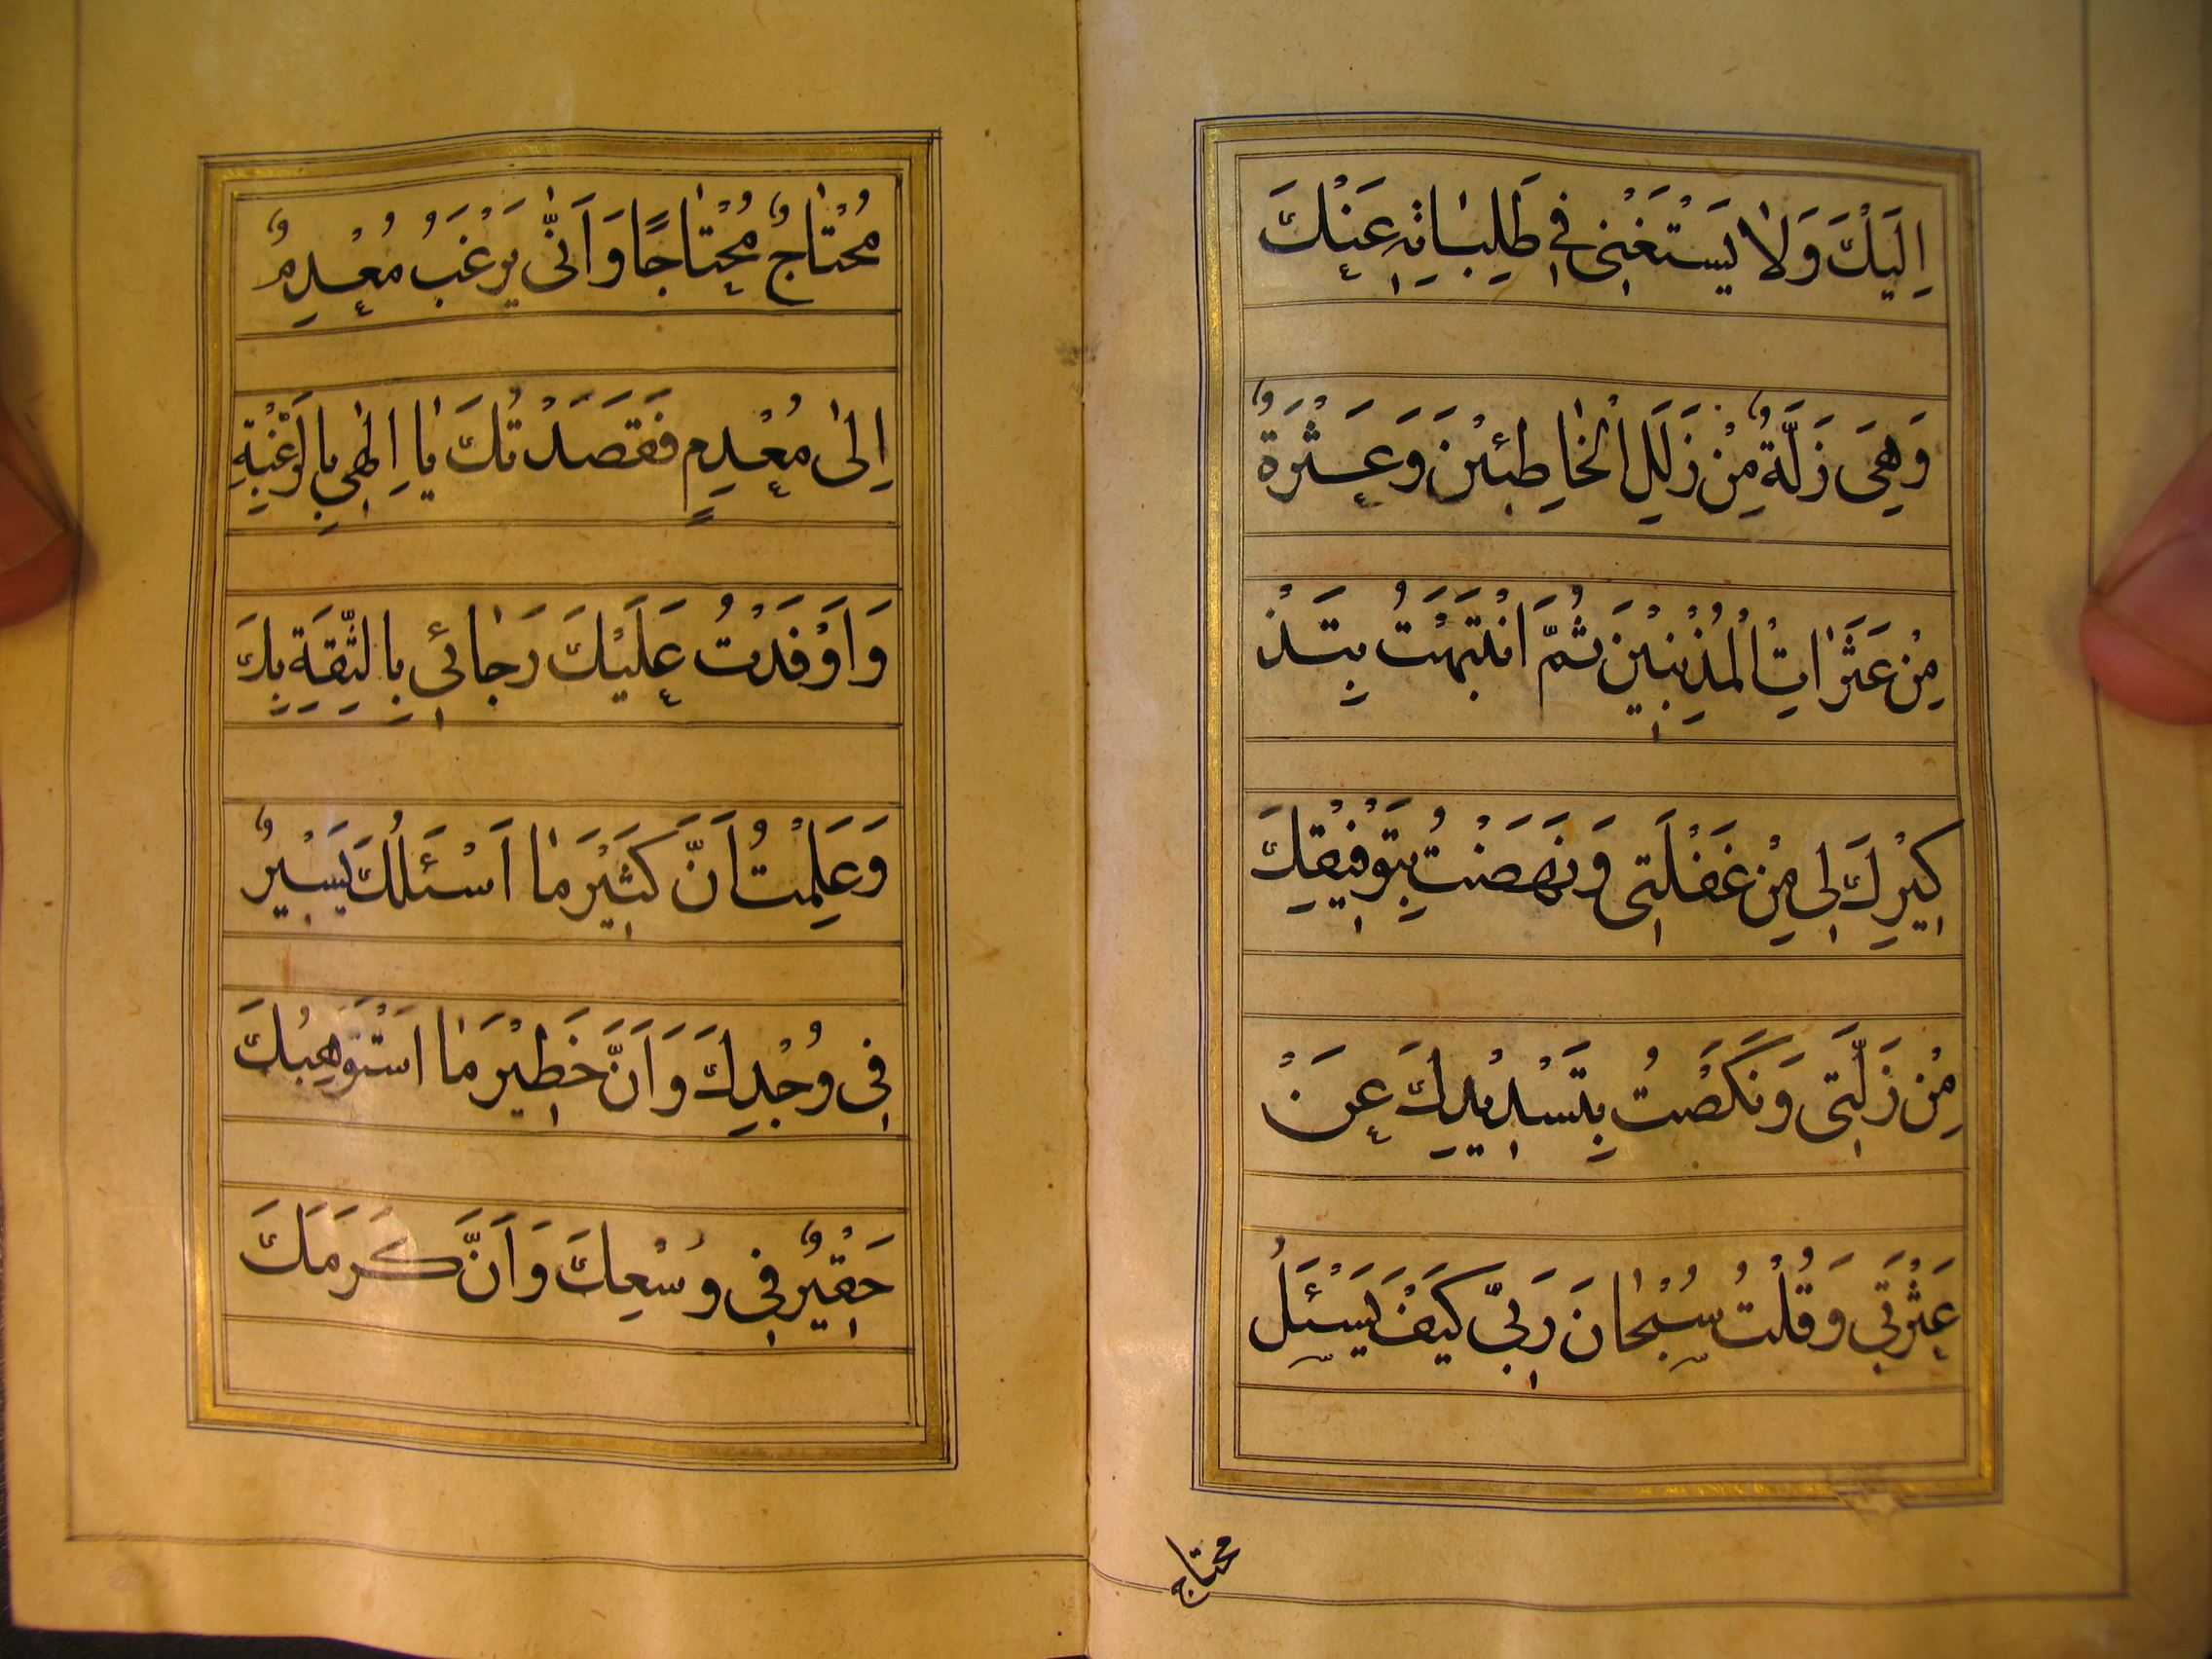 اِلَيْكَ وَلاٰ يَسْتَغْنِى فِي طَلِبٰاتِهِ عَنْكَ
وَهِىَ زَلَّةٌ مِنْ زَلَلِ الْخٰاطِئِيْنَ وَعَثْرَةٌ
مِنْ عَثَرٰاتِ الْمُذْنِبِيْنَ ثُمَّ انْتَبَهْتُ بِتَذْ
كِيْرِكَ لِى مِنْ غَفْلَتِى وَنَهَضْتُ بِتَوْفِيْقِكَ
مِنْ زَلَّتِى وَنَكَصْتُ بِتَسْدِيْدِكَ عَنْ
عَثْرَتِي وَقُلْتُ سُبْحٰانَ رَبِّى كَيْفَ يَسْئَلُ
محتاج
مُحْتٰاجٌ مُحْتٰاجًا وَاَنّٰى يَرْغَبُ مُعْدِمٌ
اِلىٰ مُعْدِمٍ فَقَصَدْتُكَ يٰا اِلٰهِى بِالرَّغْبَةِ
وَاَوْفَدْتُ عَلَيْكَ رَجٰائِى بِالثِّقَةِ بِكَ
وَعَلِمْتُ اَنَّ كَثِيْرَ مٰا اَسْئَلُكَ يَسِيْرٌ
فِى وُجْدِكَ وَاَنَّ خَطِيْرَ مٰا اَسْتَوْهِبُكَ
حَقِيْرٌ فِى وُسْعِكَ وَاَنَّ كَرَمَكَ